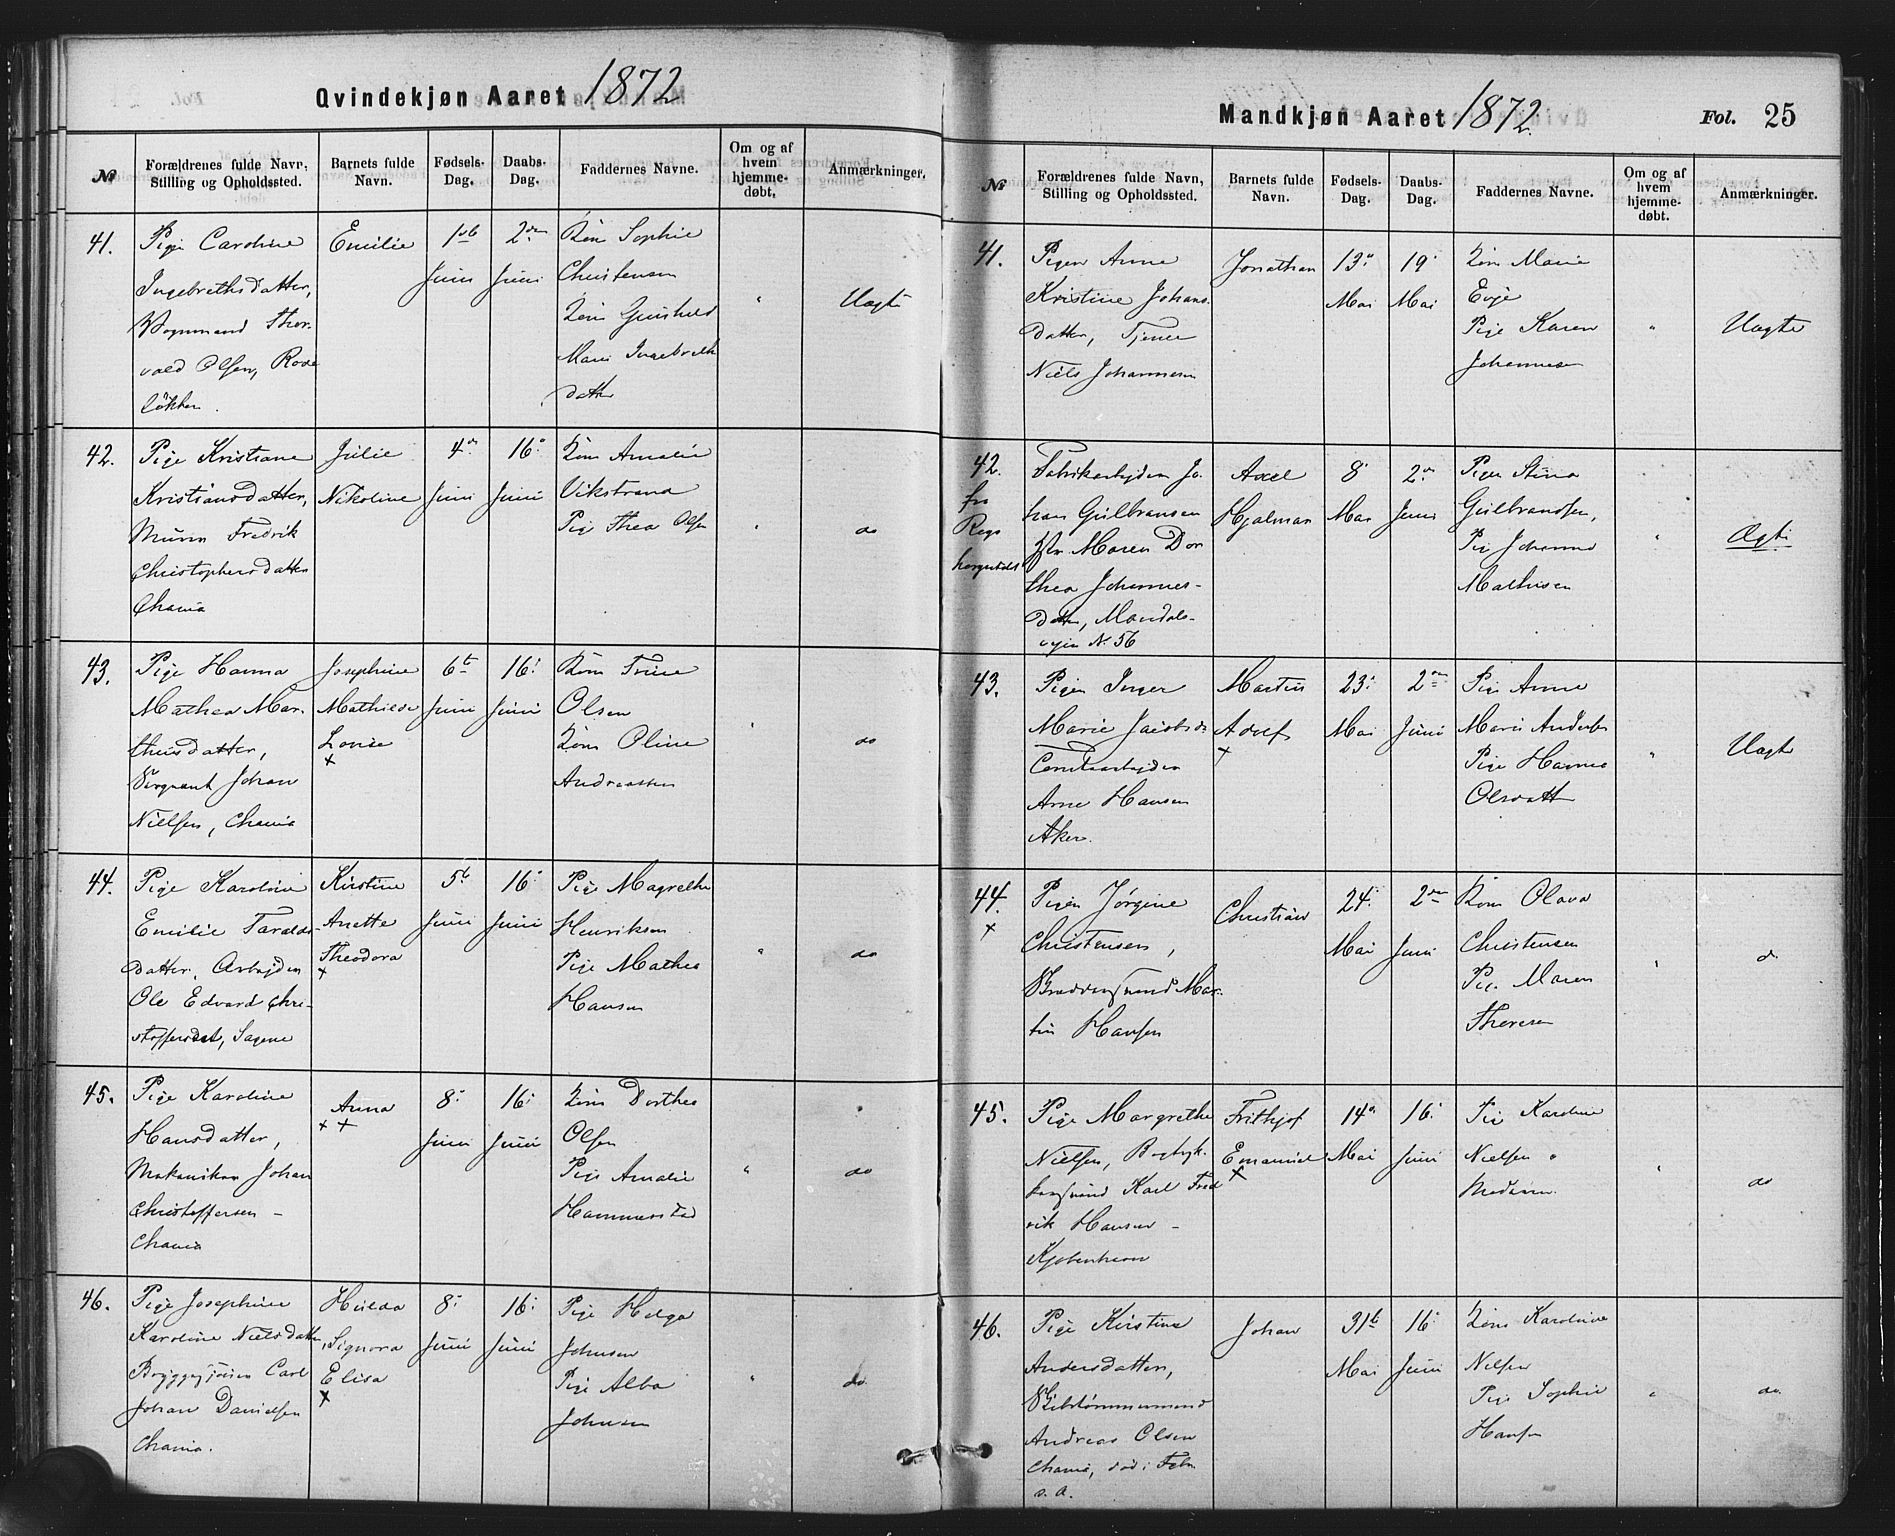 Qvindekjøn Aaret 1872
№
Forældrenes fulde Navn, Stilling og Opholdssted.
Barnets fulde Navn.
Fødsels-Dag.
Daabs-Dag.
Faddernes Navne.
Om og af hvem hjemme-døbt.
Anmærkninger.
41.
Pige Caroline
Ingebrethsdatter,
Vognmand Thor-
vald Olsen, Rode
Løkken.
Emilie
1ste
Juni
2den
Juni
Kone Sophie
Christensen
Kone Gunhild
Marie Ingebreth
datter
"
Uægte
42.
Pige Kristiane
Kristiansdatter,
Murer Fredrik
Christophersdatter
Chania
Julie
Nikoline
4de
Juni
16
Juni
Kone Amalie
Vikstrand
Pige Thea Olsen
"
do
43.
Pige Hanna
Mathea Mar-
thinsdatter,
Sergeant Johan
Nielsen, Chania
Josephine
Mathilde
Lovise
x
6te
Juni
16
Juni
Kone Trine
Olsen
Kone Oline
Andreassen
"
do
44.
Pige Karoline
Emilie Taralds-
datter, Arbejder
Ole Edvard Chri-
stoffersdat, Sagene
Kirstine
Anette
Theodora
x
5te
Juni
16
Juni
Pige Magrethe
Henriksen
Pige Mathea
Hansen
"
do
45.
Pige Karoline
Hansdatter,
Mekaniker Johan
Christoffersen -
Chania
Anna
x x
8
Juni
16
Juni
Kone Dorthea
Olsen
Pige Amalie
Hammerstad
"
do
46.
Pige Josephine
Karoline Nielsdatter,
Bryggesjouer Carl
Johan Danielsen
Chania.
Hulda
Signora
Elisa
x
8
Juni
16
Juni
Pige Helga
Johnsen
Pige Alba
Johnsen
"
do
Mandkjøn Aaret 1872
Fol. 25
№
Forældrenes fulde Navn, Stilling og Opholdssted.
Barnets fulde Navn.
Fødsels-Dag.
Daabs-Dag.
Faddernes Navne.
Om og af hvem hjemme-døbt.
Anmærkninger.
41.
Pigen Anne
Kristine Johans-
datter, Tjener
Niels Johannesen
Jonathan
13
Mai
19
Mai
Kone Marie
Evje
Pige Karen
Johannesen
"
Uægte
42.
fra
Fabrikarbejder Jo-
han Gulbransen
Hstr Maren Dor
thea Johannes-
datter, Maridals-
vejen № 56
Axel
Hjalmar
8
Mai
2den
Juni
Pigen Stina
Gulbrandsen,
Pige Johanne
Mathisen
"
Ægte
43.
Pigen Inger
Marie Jacobsd.
Arne Hansen
Aker.
Martin
Adolf
x
23
Mai
2den
Juni
Pige Anne
Marie Andersen
Pige Hanna
Olsdatt
"
Uægte
44.
x
Pigen Jørgine
Christensen,
Mar-
tin Hansen
Christian
24
Mai
2den
Juni
Kone Olava
Christensen
Pige Maren
Thoresen
"
do
45.
Pige Margrethe
Nielsen, Bogtryk-
kersvend Karl Fred
rik Hansen -
Kjøbenhavn
Frithjof
Emanuel
x
14
Mai
16
Juni
Pige Karoline
Nielsen
"
do
46.
Pige Kirstine
Andersdatter,
Skibstømmermand
Andreas Olsen
Chania, død i Febr.
s. a.
Johan
31te
Mai
16
Juni
Kone Karoline
Nilsen
Pige Sophie
Hansen
"
do